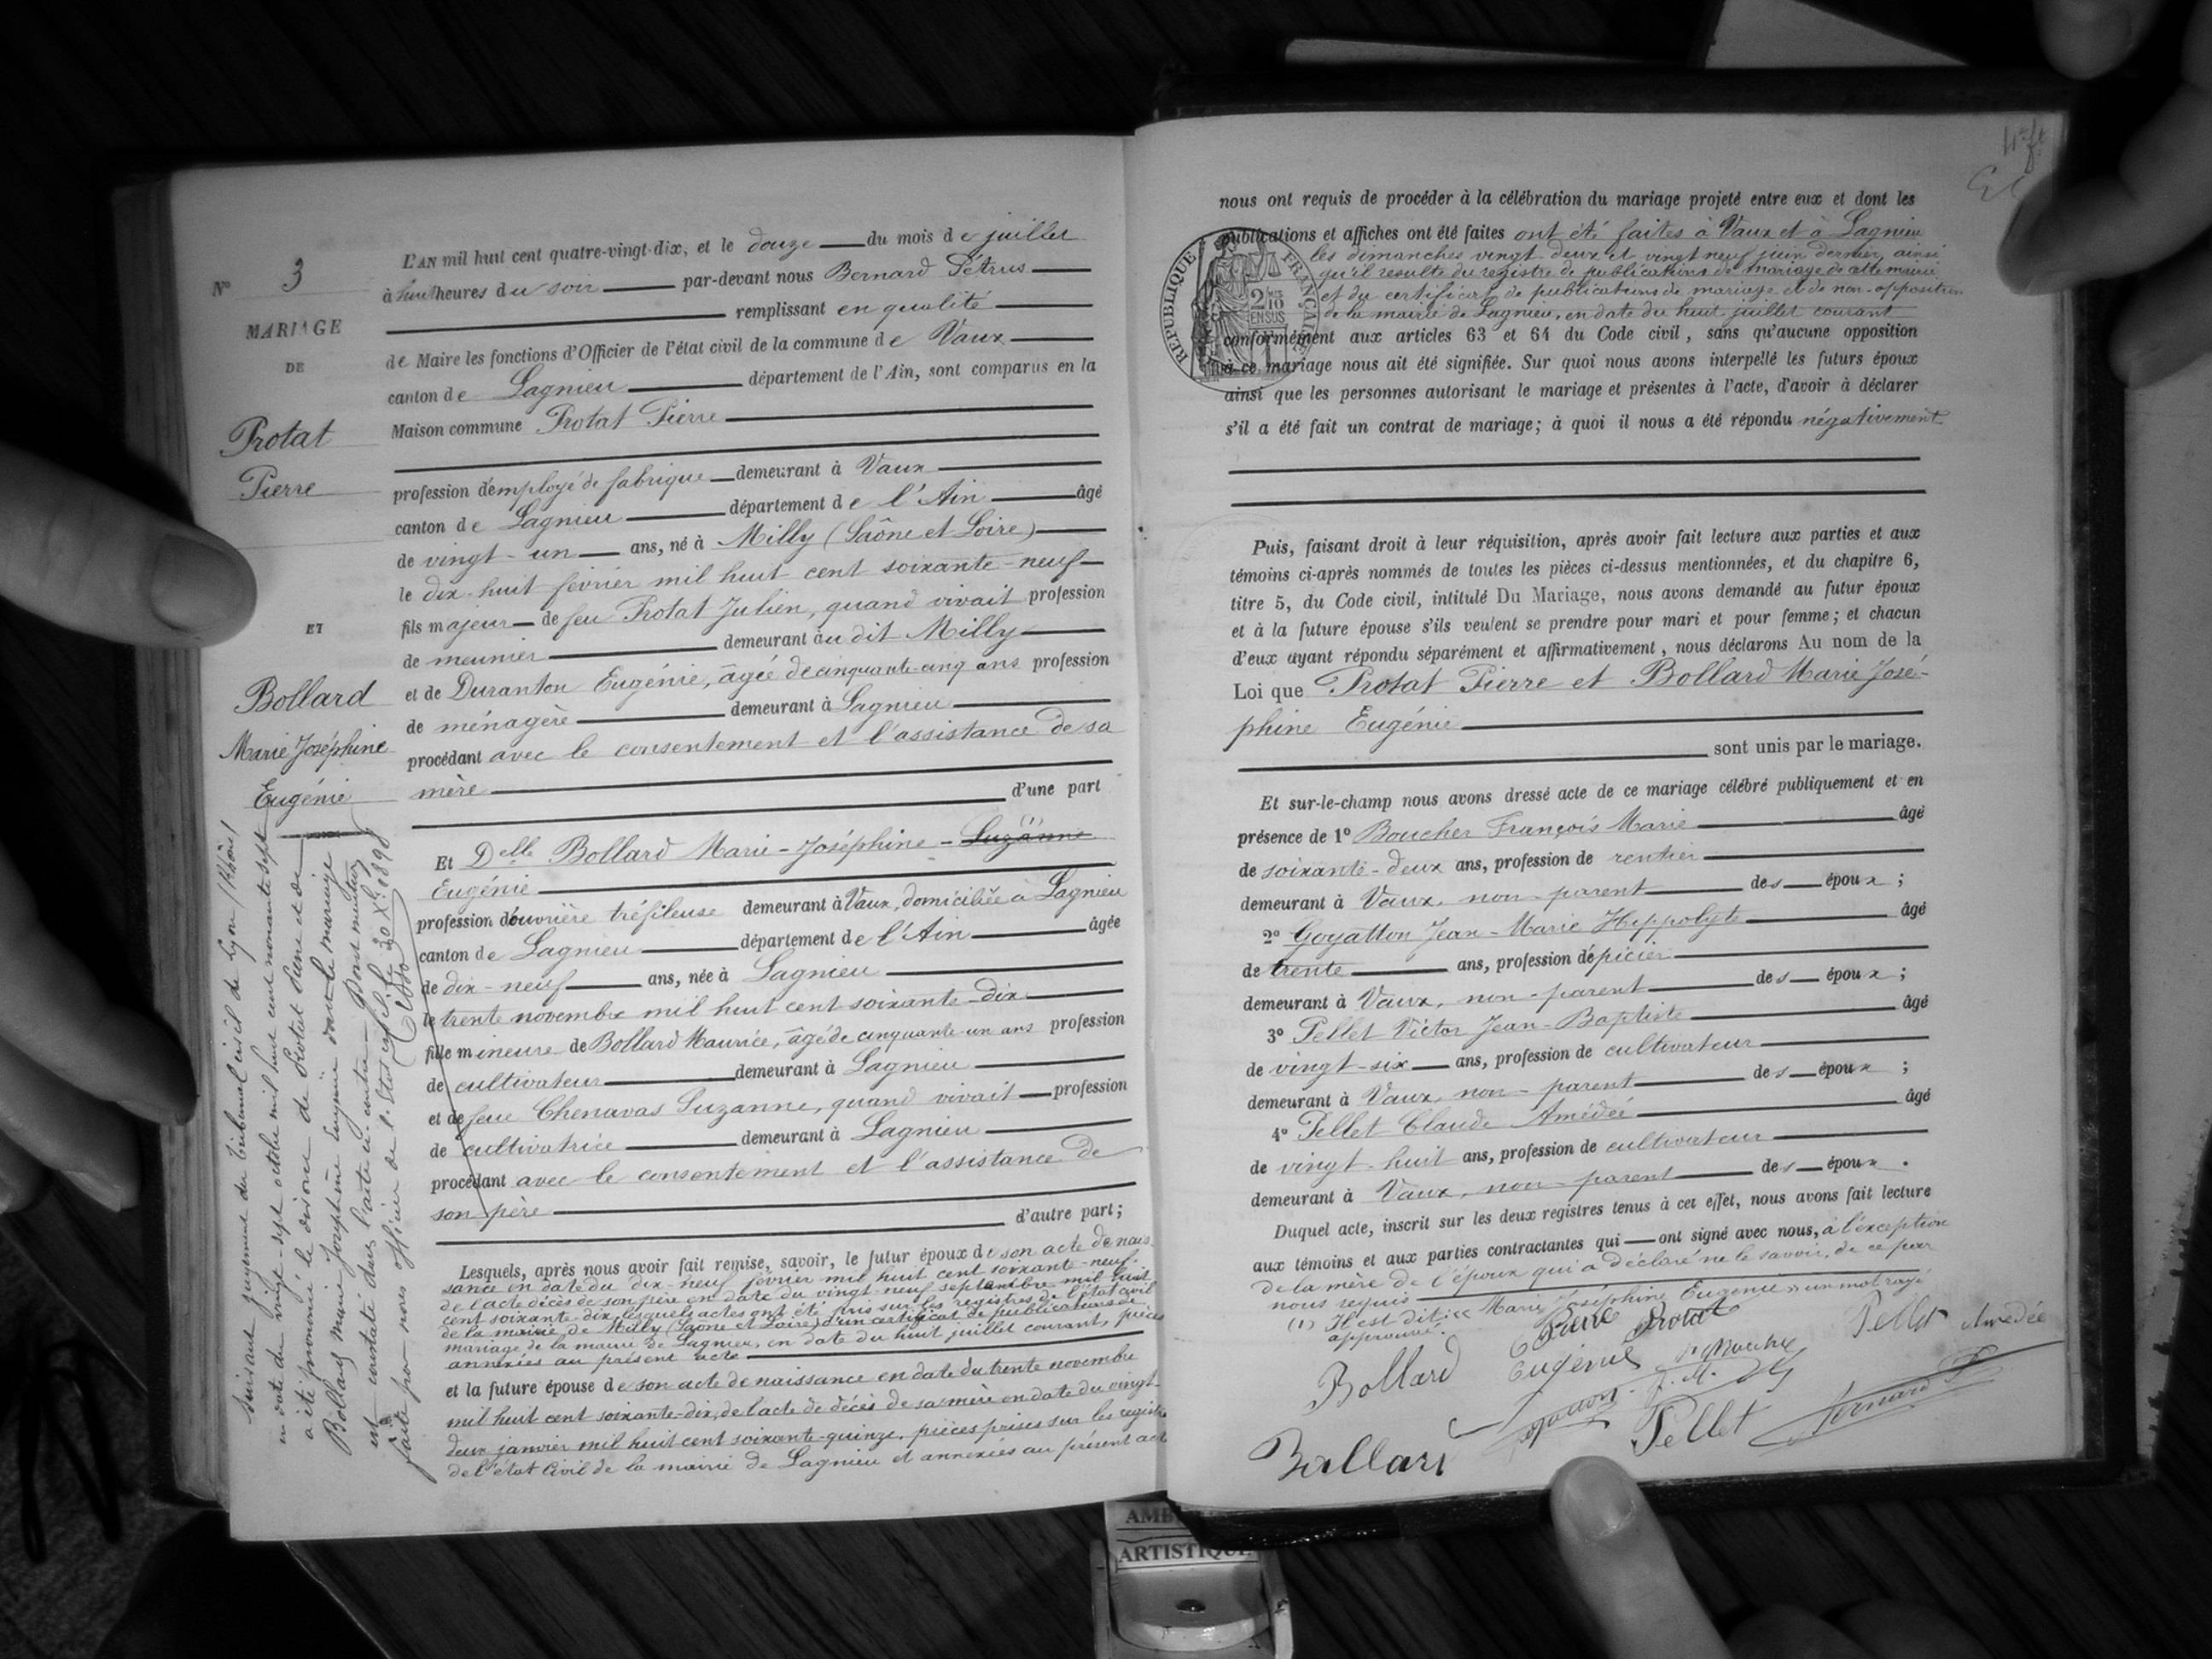 N° 3
MARIAGE
DE
Protat
Pierre
ET
Bollard
Marie Joséphine
Eugénie
Suivant jugement du tribunal civil de Lyon (Rhône)
en date du vingt-sept octobre mil huit cent nonante sept
a été prononcé le divorce de Protat Pierre et de
Bollard Marie Joséphine Eugénie dont le mariage
est constaté dans l'acte ci-contre
faite par nous officier de l'Etat civil le 20 Xbre 1898
L'AN mil huit cent quatre-vingt-dix, et le douze du mois de juillet
à huit heures du soir par-devant nous Bernard Pétrus
remplissant en qualité
de Maire les fonctions d'Officier de l'état civil de la commune de Vaux
canton de Lagnieu département de l'Ain, sont comparus en la
Maison commune Protat Pierre
profession d'employé de fabrique demeurant à Vaux
canton de Lagnieu département de l'Ain âgé
de vingt-un ans, né à Milly (Saône et Loire)
le dix-huit février mil huit cent soixante-neuf
fils majeur de feu Protat Julien, quand vivait profession
de meunier demeurant au dit Milly
et de Duranton Eugénie, âgée de cinquante-cinq ans profession
de ménagère demeurant à Lagnieu
procédant avec le consentement et l'assistance de sa
mère
d'une part
Et Delle Bollard Marie-Joséphine-Suzanne
Eugénie
profession d'ouvrière tréfileuse demeurant à Vaux, domiciliée à Lagnieu
canton de Lagnieu département de l'Ain âgée
de dix-neuf ans, née à Lagnieu
le trente novembre mil huit cent soixante-dix
fille mineure de Bollard Maurice, âgé de cinquante-un ans profession
de cultivateur demeurant à Lagnieu
et de feue Chenavas Suzanne, quand vivait profession
de cultivatrice demeurant à Lagnieu
procédant avec le consentement et l'assistance de
son père
d'autre part;
Lesquels, après nous avoir fait remise, savoir, le futur époux de son acte de nais-
sance en date du dix-neuf février mil huit cent soixante-neuf.
de l'acte décès de son père en date du vingt-neuf septembre mil huit
cent soixante-dix, lesquels actes ont été pris sur les registres de l'état civil
de la mairie de Milly (Saône et Loire) d'un certificat de publications de
mariage de la mairie de Lagnieu, en date du huit juillet courant, pièces
annexées au présent acte
et la future épouse de son acte de naissance en date du trente novembre
mil huit cent soixante-dix, de l'acte de décès de sa mère en date du vingt
deux janvier mil huit cent soixante-quinze. pièces prises sur les registres
de l'état Civil de la mairie de Lagnieu et annexées au présent acte
nous ont requis de procéder à la célébration du mariage projeté entre eux et dont les
publications et affiches ont été faites ont été faites à Vaux et à Lagnieu
les dimanches vingt-deux et vingt neuf juin dernier, ainsi
qu'il résulte du registre de publications de mariage de cette mairie
et du certificat de publications de mariage et de non-opposition
de la mairie de Lagnieu, en date du huit juillet courant
RÉPUBLIQUE FRANÇAISE
2/10 EN SUS
conformément aux articles 63 et 64 du Code civil, sans qu'aucune opposition
à ce mariage nous ait été signifiée. Sur quoi nous avons interpellé les futurs époux
ainsi que les personnes autorisant le mariage et présentes à l'acte, d'avoir à déclarer
s'il a été fait un contrat de mariage; à quoi il nous a été répondu négativement
Puis, faisant droit à leur réquisition, après avoir fait lecture aux parties et aux
témoins ci-après nommés de toutes les pièces ci-dessus mentionnées, et du chapitre 6,
titre 5, du Code civil, intitulé Du Mariage, nous avons demandé au futur époux
et à la future épouse s'ils veulent se prendre pour mari et pour femme; et chacun
d'eux ayant répondu séparément et affirmativement, nous déclarons Au nom de la
Loi que Protat Pierre et Bollard Marie José-
phine Eugénie
sont unis par le mariage.
Et sur-le-champ nous avons dressé acte de ce mariage célébré publiquement et en
présence de 1° Boucher François Marie âgé
de soixante-deux ans, profession de rentier
demeurant à Vaux, non-parent des époux;
2° Goyatton Jean-Marie Hippolyte âgé
de trente ans, profession d'épicier
demeurant à Vaux, non-parent des époux;
3° Pellet Victor Jean-Baptiste âgé
de vingt-six ans, profession de cultivateur
demeurant à Vaux, non-parent des époux;
4° Pellet Claude Amédée âgé
de vingt-huit ans, profession de cultivateur
demeurant à Vaux, non-parent des époux.
Duquel acte, inscrit sur les deux registres tenus à cet effet, nous avons fait lecture
aux témoins et aux parties contractantes qui ont signé avec nous, à l'exception
de la mère de l'époux qui a déclaré ne le savoir, de ce par
nous requis
(1) Il est dit: « Marie Joséphine Eugénie » un mot rayé
approuvé.
Pierre Protat
Pellet Amédée
Bollard Eugénie
Pellet
Bernard P
Bollard
AMB
ARTISTIQUE